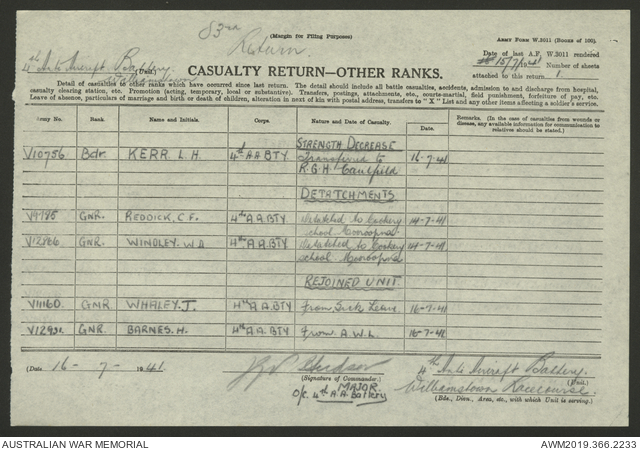 83rd
Return.
(Margin for Filing Purposes)
ARMY FORM W.3011 (BOOKS OF 100).
4th Anti Aircraft Battery.
Williamstown
(Unit)
CASUALTY RETURN—OTHER RANKS.
Date of last A.F. W.3011 rendered
15/7/1941
Number of sheets
attached to this return 1
Detail of casualties to other ranks which have occurred since last return. The detail should include all battle casualties, accidents, admission to and discharge from hospital,
casualty clearing station, etc. Promotion (acting, temporary, local or substantive). Transfers, postings, attachments, etc., courts-martial, field punishment, forfeiture of pay, etc.
Leave of absence, particulars of marriage and birth or death of children, alteration in next of kin with postal address, transfers to "X" List and any other items affecting a soldier's service.
Army No. Rank. Name and Initials. Corps. Nature and Date of Casualty. Date. Remarks. (In the case of casualties from wounds or disease, any available information for communication to relatives should be stated.)
STRENGTH DECREASE
V10756 Bdr. KERR. L. H. 4th A A BTY Transferred to 16-7-41
R.G.H. Caulfield
DETATCHMENTS
GNR. REDDICK. C. F. 4th A A. BTY Detatched to Cookery 14-7-41
school Mooroopna
GNR. WINDLEY. W A 4th A A. BTY Detatched to Cookery 14-7-41
school. Mooroopna
REJOINED UNIT
V11160. GNR WHALEY. J. 4th A A. BTY From Sick Leave. 16-7-41
GNR. BARNES. H. 4th A A. BTY From A. W. L. 16-7-41
(Date 16 - 7 - 1941.
Hudson
(Signature of Commander)
MAJOR
O/C. 4th A.A. Battery
4th Anti Aircraft Battery.
(Unit)
Williamstown Racecourse.
(Bde., Divn., Area, etc., with which Unit is serving.)
AUSTRALIAN WAR MEMORIAL
AWM2019.366.2233